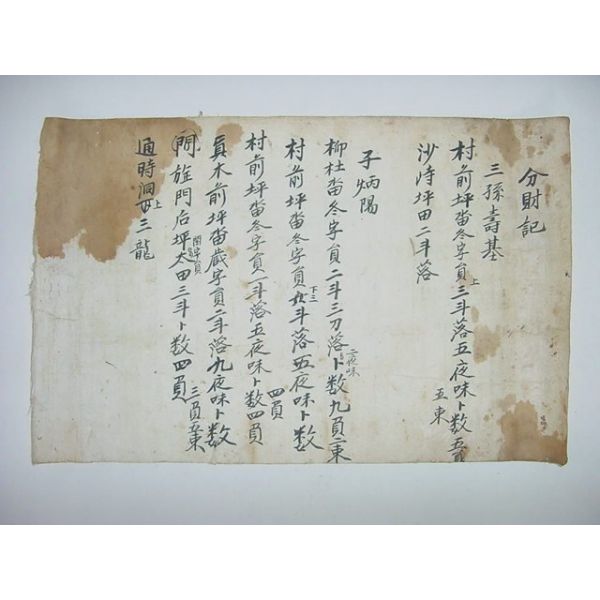 分財記
三孫壽基
村前坪畓冬字負三斗落五夜味卜数五負
五束
沙涛坪田二斗落
子炳陽
柳杜畓冬字負二斗三刀落卜数九負二束
二夜味
村前坪畓冬字負 斗落五夜味卜数
下三
四負
村前坪畓冬字負一斗落五夜味卜数四負
員木前坪畓歲字負二斗落九夜味卜数
三負五束
旌門后坪太田三斗卜数四負
閏字負
通時洞 三龍
上